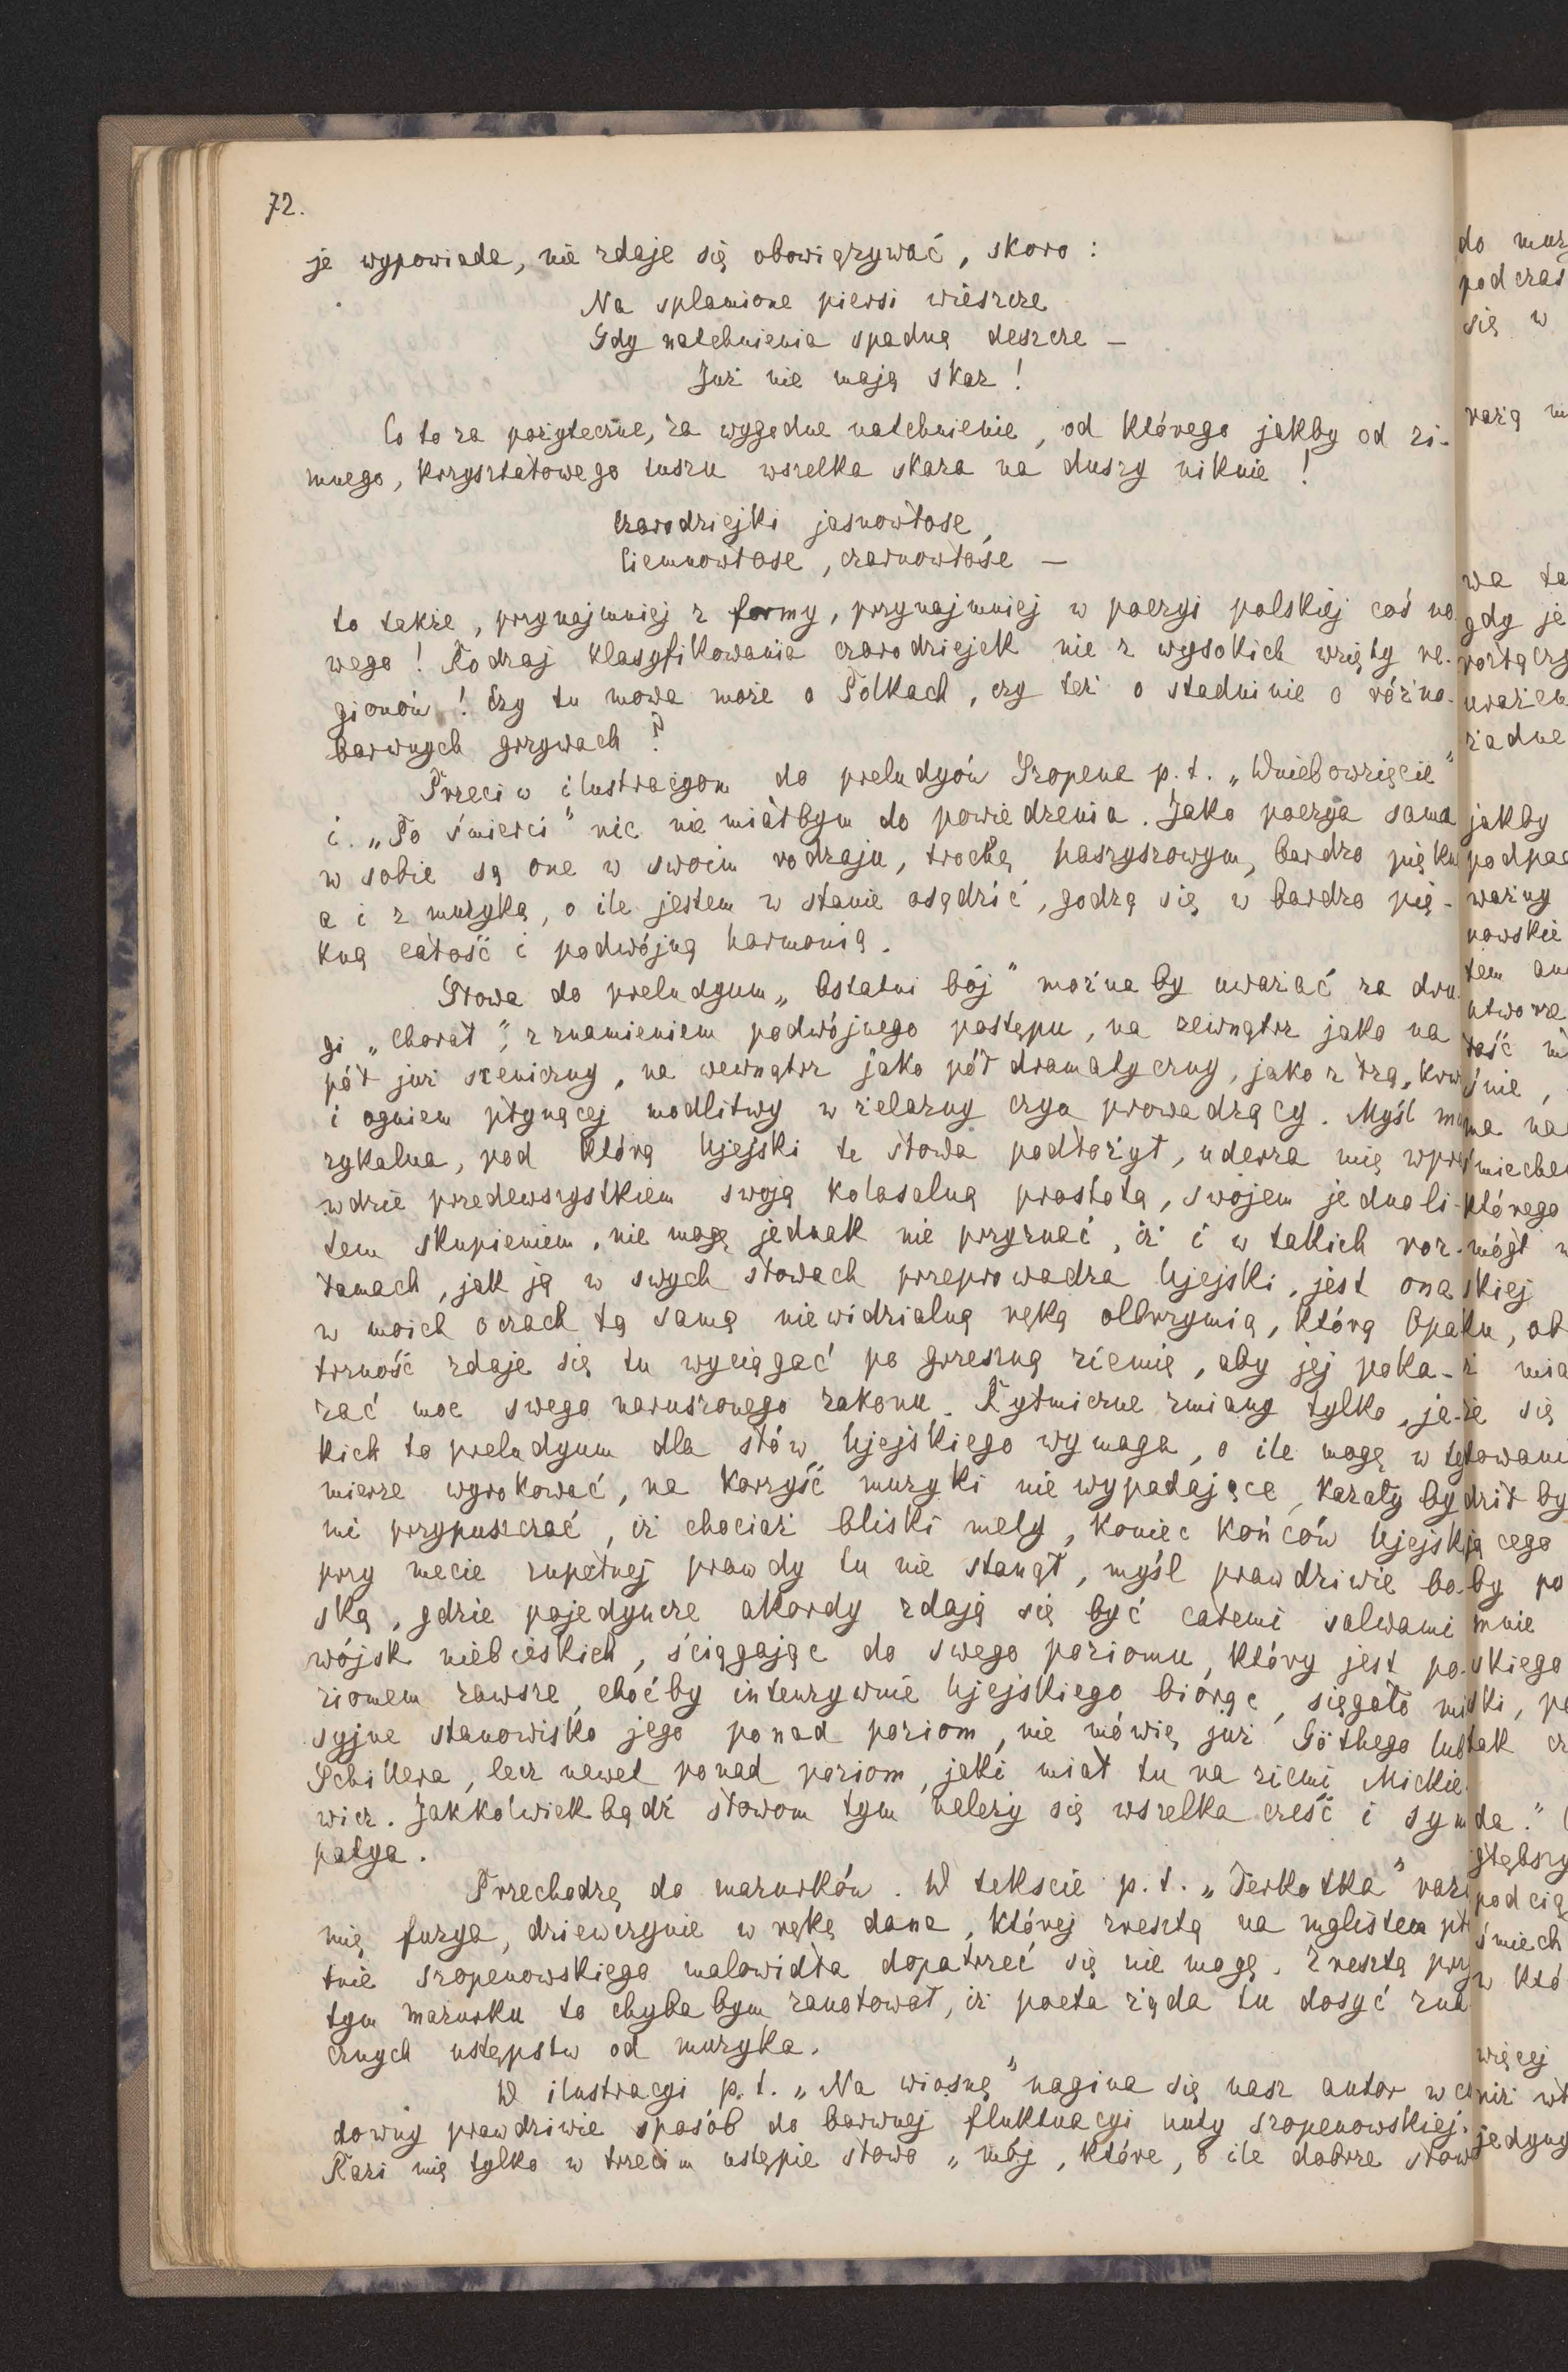 72.
je wypowiada, nie zdaje się obowiązywać, skoro :
Na splamione piersi wieszcze
Gdy natchnienia spadną deszcze —
Już nie mają skaz !
Co to za pożyteczne, za wygodne natchnienie, od którego jakby od zi-
mnego, kryształowego tuszu wszelka skaza na duszy niknie !
Czarodziejki jasnowłose,
Ciemnowłose, czarnowłose —
to także, przynajmniej z formy, przynajmniej w poezyi polskiej coś no
wego ! Rodzaj klasyfikowania czarodziejek nie z wysokich wzięty re-
gionów ! Czy tu mowa może o Polkach, czy też o stadninie o różno-
barwnych grzywach ?
Przeciw ilustracyom do preludyów Szopena p.t. „Wniebowzięcie"
i „Po śmierci" nic nie miałbym do powiedzenia. Jako poezya sama
w sobie są one w swoim rodzaju, trochę haszyszowym, bardzo piękn
a i z muzyką, o ile jestem w stanie osądzić, godzą się w bardzo pię-
kną całość i podwójną harmonią.
Słowa do preludyum „Ostatni bój" można by uważać za dru
gi „Chorał", z znamieniem podwójnego postępu, na zewnątrz jako na
pół już sceniczny, na wewnątrz jako pół dramatyczny, jako z łzą, krw
i ogniem płynącej modlitwy w żelazny czyn prowadzący. Myśl mu
zykalna, pod którą Ujejski te słowa podłożył, uderza mię wpra
wdzie przedewszystkiem swoją kolosalną prostotą, swojem jednoli-
tem skupieniem, nie mogę jednak nie przyznać, iż i w takich roz-
łamach, jak ją w swych słowach przeprowadza Ujejski, jest ona
w moich oczach tą samą niewidzialną ręką olbrzymią, którą Opa
trzność zdaje się tu wyciągać po grzeszną ziemię, aby jej poka-
zać moc swego naruszonego zakonu. Rytmiczne zmiany tylko, ja-
kich to preludyum dla słów Ujejskiego wymaga, o ile mogę w tej
mierze wyrokować, na korzyść muzyki nie wypadające, kazały by
mi przypuszczać, iż chociaż bliski mety, koniec końców Ujejski
przy mecie zupełnej prawdy tu nie stanął, myśl prawdziwie bo-
ską, gdzie pojedyncze akordy zdają się być całemi salwami
wójsk niebieskich, ściągając do swego poziomu, który jest po-
ziomem zawsze, choćby intenzywnie Ujejskiego biorąc, sięgało mi
syjne stanowisko jego ponad poziom, nie mówię już Göthego lub
Schillera, lecz nawet ponad poziom, jaki miał tu na ziemi Mickie
wicz. Jakkolwiekbądź słowom tym należy się wszelka cześć i sym
patya.
Przechodzę do mazurków. W tekście p.t. „Terkotka" razi
mię furya, dziewczynie w rękę dana, której zresztą na mglistem pł
tnie szopenowskiego malowidła dopatrzeć się nie mogę. Zresztą przy
tym mazurku to chyba bym zanotował, iż poeta żąda tu dosyć zna
cznych ustępstw od muzyka.
W ilustracyi p.t. „Na wiosnę" nagina się nasz autor w cu
downy prawdziwie sposób do barwnej fluktuacyi nuty szopenowskiej.
Razi mię tylko w trzecim ustępie słowo „mój, które, o ile dobrze słow